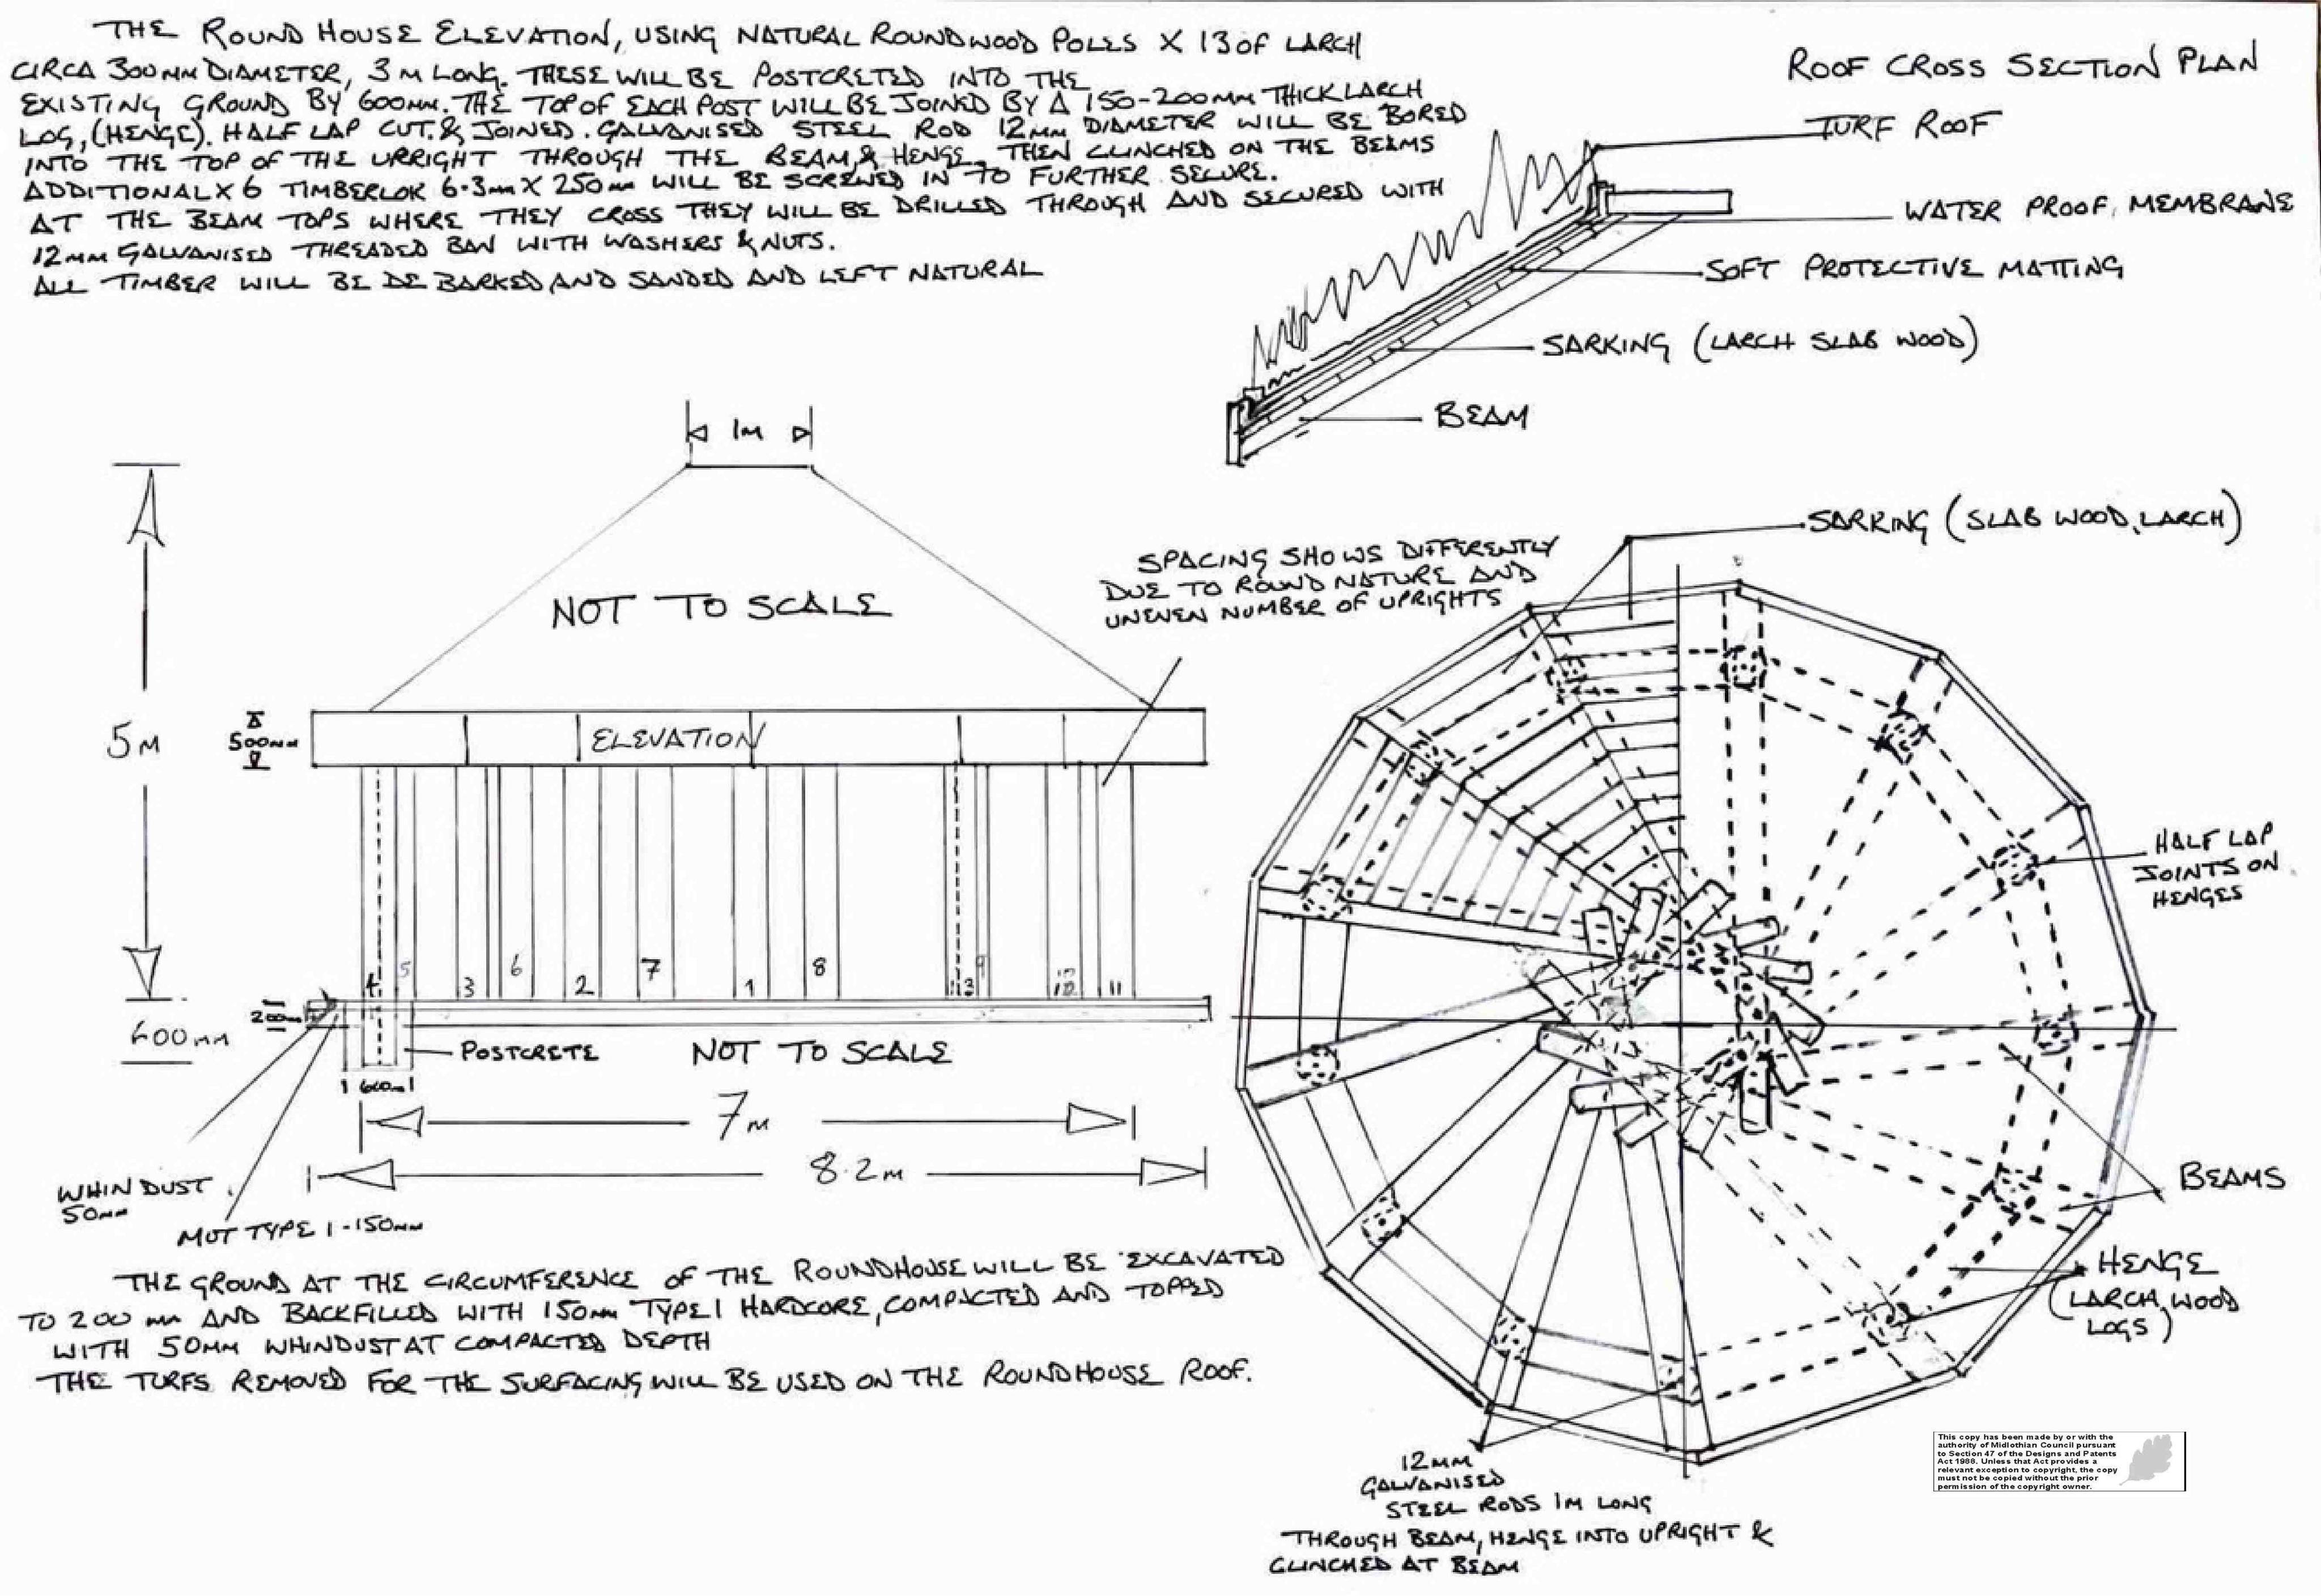 THE ROUND HOUSE ELEVATION, USING NATURAL ROUNDWOOD POLES X 13 OF LARCH
CIRCA 300MM DIAMETER, 3M LONG. THESE WILL BE POSTCRETED INTO THE
EXISTING GROUND BY 600MM. THE TOP OF EACH POST WILL BE JOINED BY A 150-200MM THICK LARCH
LOG, (HENGE). HALF LAP CUT & JOINED. GALVANISED STEEL ROD 12MM DIAMETER WILL BE BORED
INTO THE TOP OF THE UPRIGHT THROUGH THE BEAM & HENGE THEN CLINCHED ON THE BEAMS
ADDITIONAL X 6 TIMBERLOK 6.3mm X 250mm WILL BE SCREWED IN TO FURTHER SECURE.
AT THE BEAM TOPS WHERE THEY CROSS THEY WILL BE DRILLED THROUGH AND SECURED WITH
12MM GALVANISED THREADED BAN WITH WASHERS & NUTS.
ALL TIMBER WILL BE DE BARKED AND SANDED AND LEFT NATURAL
ROOF CROSS SECTION PLAN
TURF ROOF
WATER PROOF MEMBRANE
SOFT PROTECTIVE MATTING
SARKING (LARCH SLAB WOOD)
BEAM
1M
NOT TO SCALE
5M
500MM
ELEVATION
SPACING SHOWS DIFFERENTLY
DUE TO ROUND NATURE AND
UNEVEN NUMBER OF UPRIGHTS
4 5 3 6 2 7 1 8 13 9 12 11
200mm
600MM
POSTCRETE
NOT TO SCALE
600m
7M
8.2M
WHINDUST
50MM
MOT TYPE 1-150MM
THE GROUND AT THE CIRCUMFERENCE OF THE ROUNDHOUSE WILL BE EXCAVATED
TO 200 mm AND BACKFILLED WITH 150mm TYPE 1 HARDCORE, COMPACTED AND TOPPED
WITH 50MM WHINDUST AT COMPACTED DEPTH
THE TURFS REMOVED FOR THE SURFACING WILL BE USED ON THE ROUNDHOUSE ROOF.
SARKING (SLAB WOOD, LARCH)
HALF LAP
JOINTS ON
HENGES
BEAMS
HENGE
(LARCH WOOD
LOGS)
12MM
GALVANISED
STEEL RODS 1M LONG
THROUGH BEAM, HENGE INTO UPRIGHT &
CLINCHED AT BEAM
This copy has been made by or with the
authority of Midlothian Council pursuant
to Section 47 of the Designs and Patents
Act 1988. Unless that Act provides a
relevant exception to copyright, the copy
must not be copied without the prior
permission of the copyright owner.